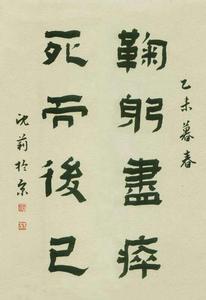 鞠躬盡瘁
死而後已
乙未暮春
沈莉於京